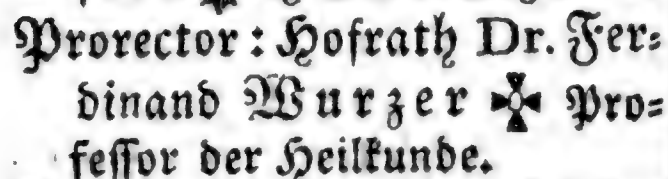 Prorector: Hofrath Dr. Fer⸗
dinand Wurzer ✠ Pro⸗
fessor der Heilkunde.